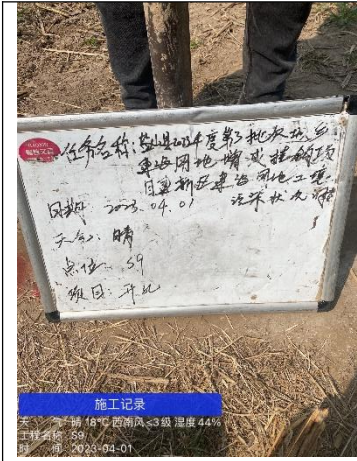 任务名称:盐山县2024年度第3批次城乡
建设用地增减挂钩项
目建新区建设用地土壤
污染状况调查
日期: 2023.04.01
天气: 晴
点位: S9
项目: 开孔
施工记录
天 气: 晴 18°C 西南风≤3级 湿度 44%
工程名称: S9
时 间: 2023-04-01